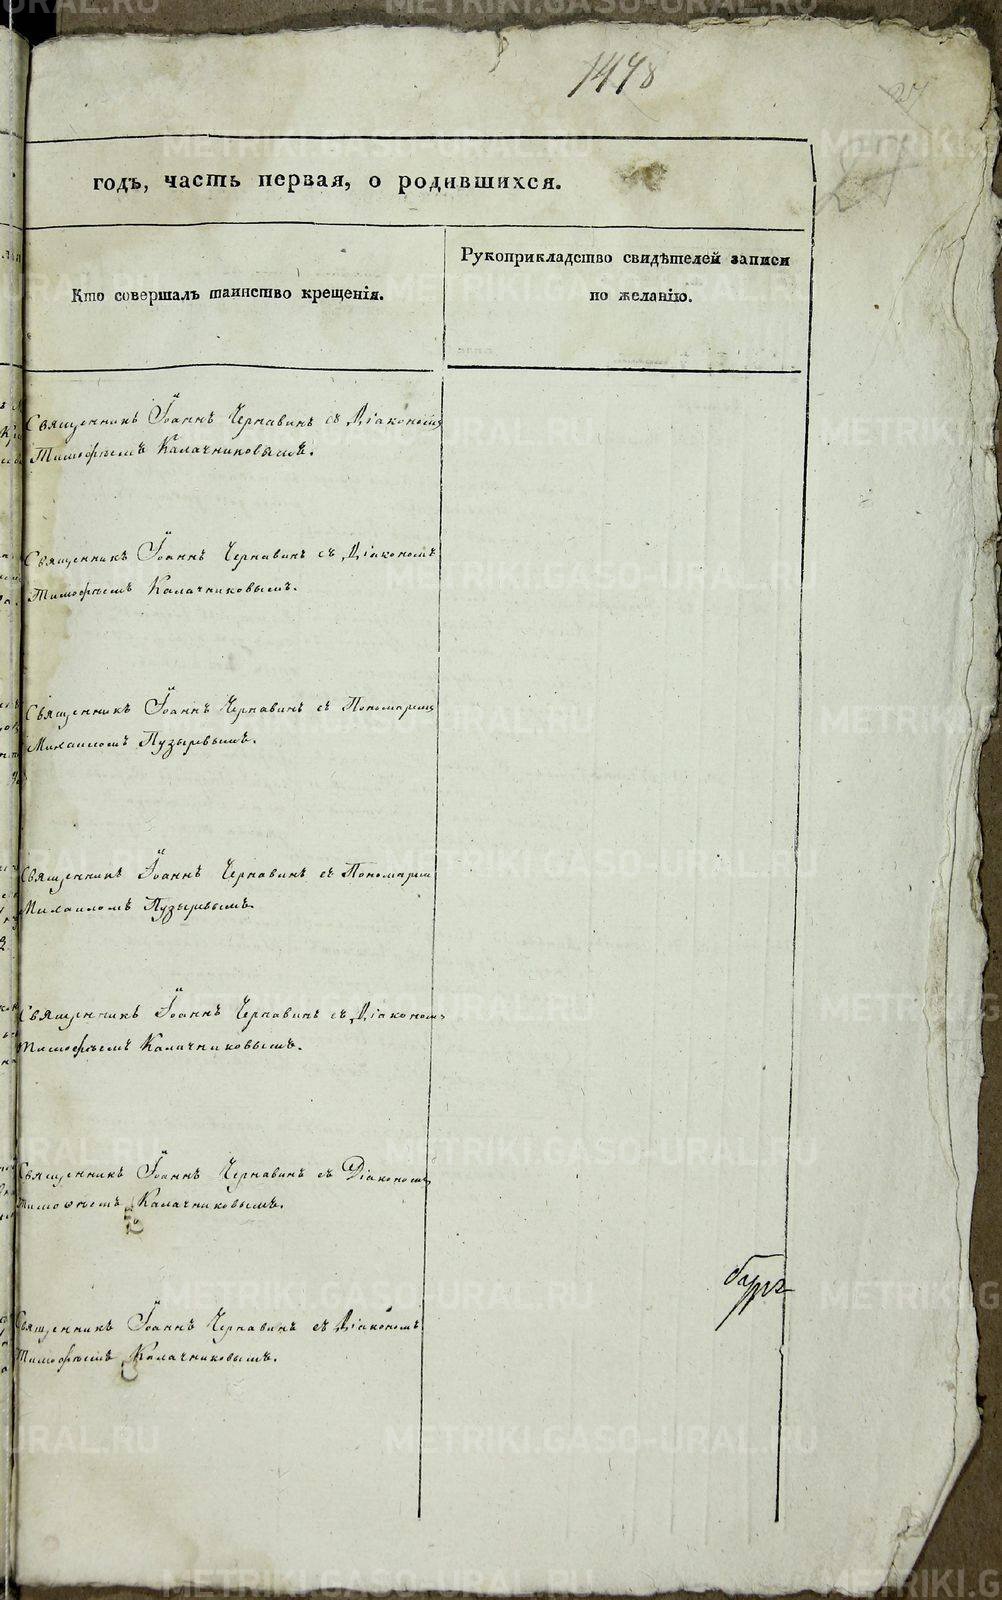 1478
годъ, часть первая, о родившихся.
Кто совершалъ таинство крещенія.
Рукоприкладство свидѣтелей записи
по желанію.
Священникъ Іоаннъ Чернавинъ съ Діакономъ
Тимофѣемъ Калачниковымъ.
Священникъ Іоаннъ Чернавинъ съ Діакономъ
Тимофѣемъ Калачниковымъ.
Священникъ Іоаннъ Чернавинъ съ Пономаремъ
Михаиломъ Пузыревымъ.
Священникъ Іоаннъ Чернавинъ съ Пономаремъ
Михаиломъ Пузыревымъ.
Священникъ Іоаннъ Чернавинъ съ Діакономъ
Тимофѣемъ Калачниковымъ.
Священникъ Іоаннъ Чернавинъ съ Діакономъ
Тимоѳеемъ Калачниковымъ.
Священникъ Іоаннъ Чернавинъ съ Діакономъ
Тимофѣемъ Калачниковымъ.
METRIKI.GASO-URAL.RU